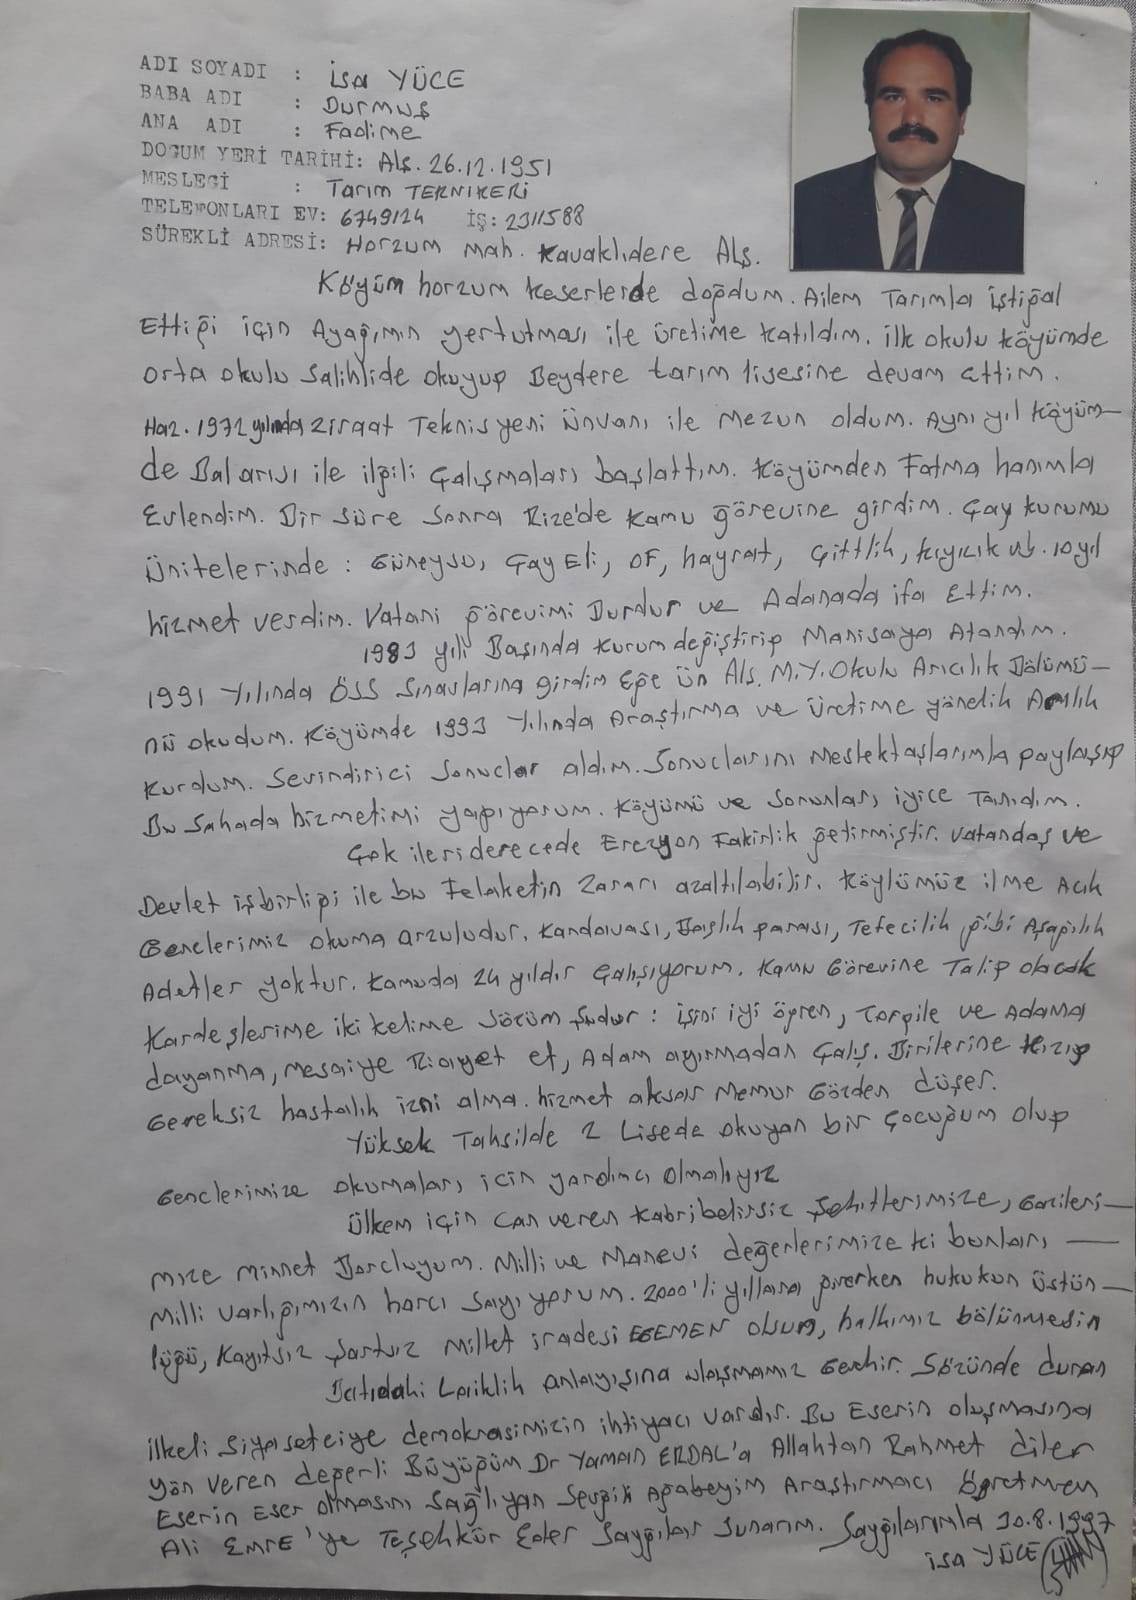 ADI SOYADI : İsa YÜCE
BABA ADI : Durmuş
ANA ADI : Fadime
DOGUM YERİ TARİHİ: Alş. 26.12.1951
MESLEGİ : Tarım TEKNİKERİ
TELEFONLARI EV: 6749124 İŞ: 2311588
SÜREKLİ ADRESİ: Horzum Mah. Kavaklıdere Alş.
Köyüm horzum keserlerde doğdum. Ailem Tarımla iştigal
Ettiği için Ayağımın yertutması ile üretime katıldım. ilk okulu köyümde
orta okulu Salihlide okuyup Beydere tarım lisesine devam ettim.
Haz. 1972 yılında ziraat Teknisyeni Ünvanı ile Mezun oldum. Aynı yıl köyüm-
de Balarısı ile ilgili Çalışmaları başlattım. Köyümden Fatma hanımla
Evlendim. Bir süre sonra Rize'de kamu görevine girdim. Çay kurumu
ünitelerinde : Güneysu, Çay Eli, OF, hayrat, Çiftlik, kıyıcık vb. 10 yıl
hizmet verdim. Vatani görevimi Burdur ve Adanada ifa Ettim.
1983 yılı Başında kurum değiştirip Manisaya Atandım.
1991 Yılında ÖSS Sınavlarına girdim Ege Ün Alş. M.Y.Okulu Arıcılık Bölümü-
nü okudum. Köyümde 1993 Yılında Araştırma ve üretime yönelik Arılık
kurdum. Sevindirici sonuclar aldım. Sonuclarını Meslektaşlarımla paylaşıp
Bu Sahada hizmetimi yapıyorum. Köyümü ve Sorunları iyice Tanıdım.
Çok ileri derecede Erezyon Fakirlik getirmiştir. Vatandaş ve
Devlet işbirligi ile bu Felaketin Zararı azaltılabilir. Köylümüz ilme Acık
Genclerimiz okuma arzuludur. Kandavası, Başlık parası, Tefecilik gibi Aşağılık
Adetler yoktur. Kamuda 24 yıldır Çalışıyorum. Kamu Görevine Talip olacak
Kardeşlerime iki kelime sözüm şudur : işini iyi öğren, Torpile ve Adama
dayanma, mesaiye Riayet et, Adam ayırmadan Çalış. Birilerine kızıp
Gereksiz hastalık izni alma. hizmet aksar Memur Gözden düşer.
Yüksek Tahsilde 2 Lisede okuyan bir Çocuğum olup
Genclerimize okumaları icin yardımcı olmalıyız
Ülkem için can veren kabribelirsiz Şehitlerimize, Gazileri-
mize minnet Borcluyum. Milli ve Manevi değerlerimize ki bunları
Milli varlığımızın harcı sayıyorum. 2000'li yıllara girerken hukukun üstün-
lüğü, kayıtsız şartsız millet iradesi EGEMEN olsun, halkımız bölünmesin
Batıdaki Laiklik anlayışına ulaşmamız Gerekir. Sözünde duran
ilkeli siyasetciye demokrasimizin ihtiyacı vardır. Bu Eserin oluşmasına
yön veren değerli Büyüğüm Dr Yaman ERDAL'a Allahtan Rahmet diler
Eserin Eser olmasını sağlıyan Sevgili Agabeyim Araştırmacı öğretmen
Ali EMRE'ye Teşekkür Eder Saygılar Sunarım. Saygılarımla 30.8.1997
isa YÜCE